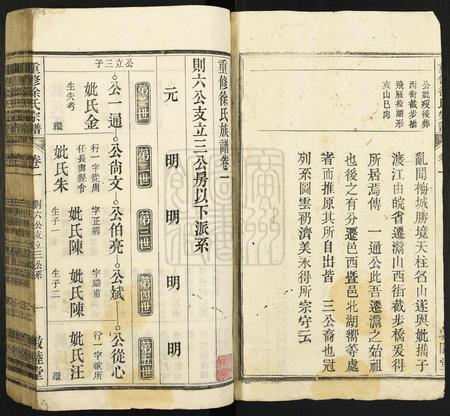 公妣歿後葬
西街截步橋
飛雁投湖形
亥山巳向
亂聞梅城勝境天柱名山遂與妣攜子
渡江由皖省遷灊山西街截步橋爰得
所居焉傳 一通公此吾遷灊之始祖
也後之有分遷邑西暨邑北湖嚮等處
者而推原其所自出皆 三公裔也冠
列系圖雲礽濟美永得所宗守云
重修徐氏族譜卷一
則六公支立三公房以下派系
元 明 明 明 明
第一世 第二世 第三世 第四世 第五世
公立三子
公一通 公尚文 公伯亮 公斌 公從心
生失考
妣氏金
繼
行一字從周
任長壽縣令
妣氏朱
字正卿
妣氏陳
生子一
字端甫
妣氏陳
生子二
行一字歛所
妣氏汪
繼
重修徐氏宗譜
卷一
則六公支立三公系
一
敦睦堂